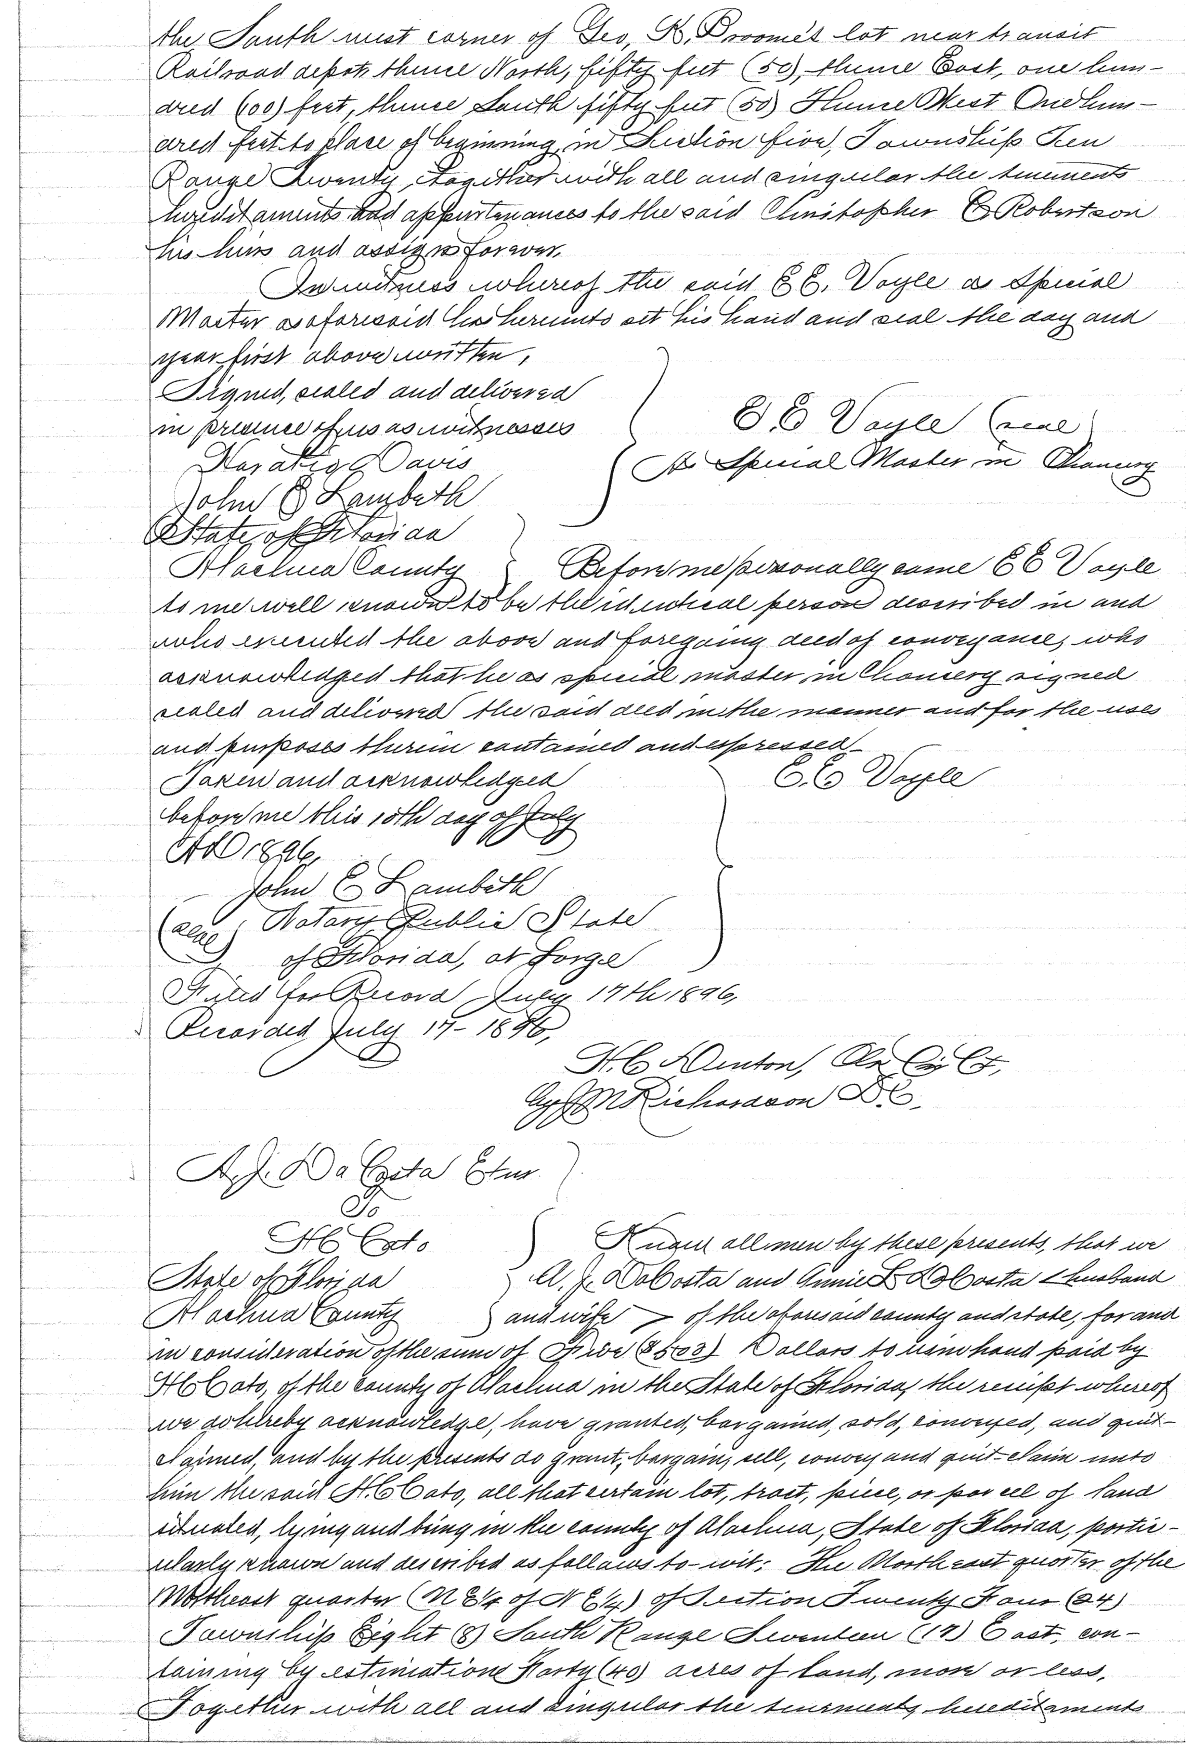 the South west corner of Geo, K. Broome's lot near transit
Railroad depot, thence North, fifty feet (50), thence East, one hun-
dred (100) feet, thence South fifty feet (50) Thence West One hun-
dred feet to place of beginning, in Section five, Township Ten
Range Twenty, together with all and singular the tenements
hereditaments and appurtenances to the said Christopher C Robertson
his heirs and assigns forever,
In witness whereof the said E E. Voyle as Special
Master as aforesaid has hereunto set his hand and seal the day and
year first above written,
Signed, sealed and delivered
in presence of us as witnesses
E. E Voyle (seal)
Horatio Davis
As Special Master in Chancery
John E Lambeth
State of Florida
Alachua County
Before me personally came E E Voyle
to me well known to be the identical person described in and
who executed the above and foregoing deed of conveyance, who
acknowledged that he as special master in Chancery signed
sealed and delivered the said deed in the manner and for the uses
and purposes therein contained and expressed
Taken and acknowledged
E. E Voyle
before me this 10th day of July
AD 1896,
John E Lambeth
(seal) Notary Public State
of Florida, at Large
Filed for Record July 17th 1896,
Recorded July 17- 1896,
H. C Denton, Clk Cir Ct,
By M Richardson D. C.
A. J. Da Costa Etux.
To
H C Cato
Know all men by these presents, that we
State of Florida
A. J. DaCosta and Annie L DaCosta husband
Alachua County
and wife of the aforesaid county and state, for and
in consideration of the sum of Five ($500) Dollars to us in hand paid by
H C Cato, of the county of Alachua in the State of Florida, the receipt whereof
we do hereby acknowledge, have granted, bargained, sold, conveyed, and quit-
claimed, and by the presents do grant, bargain, sell, convey and quit-claim unto
him the said H. C Cato, all that certain lot, tract, piece, or parcel of land
situated, lying and being in the county of Alachua, State of Florida, partic-
ularly known and described as follows to-wit: The North east quarter of the
Northeast quarter (N E 1/4 of N E 1/4) of Section Twenty Four (24)
Township Eight (8) South Range Seventeen (17) East, con-
taining by estimation Forty (40) acres of land, more or less.
Together with all and singular the tenements, hereditaments